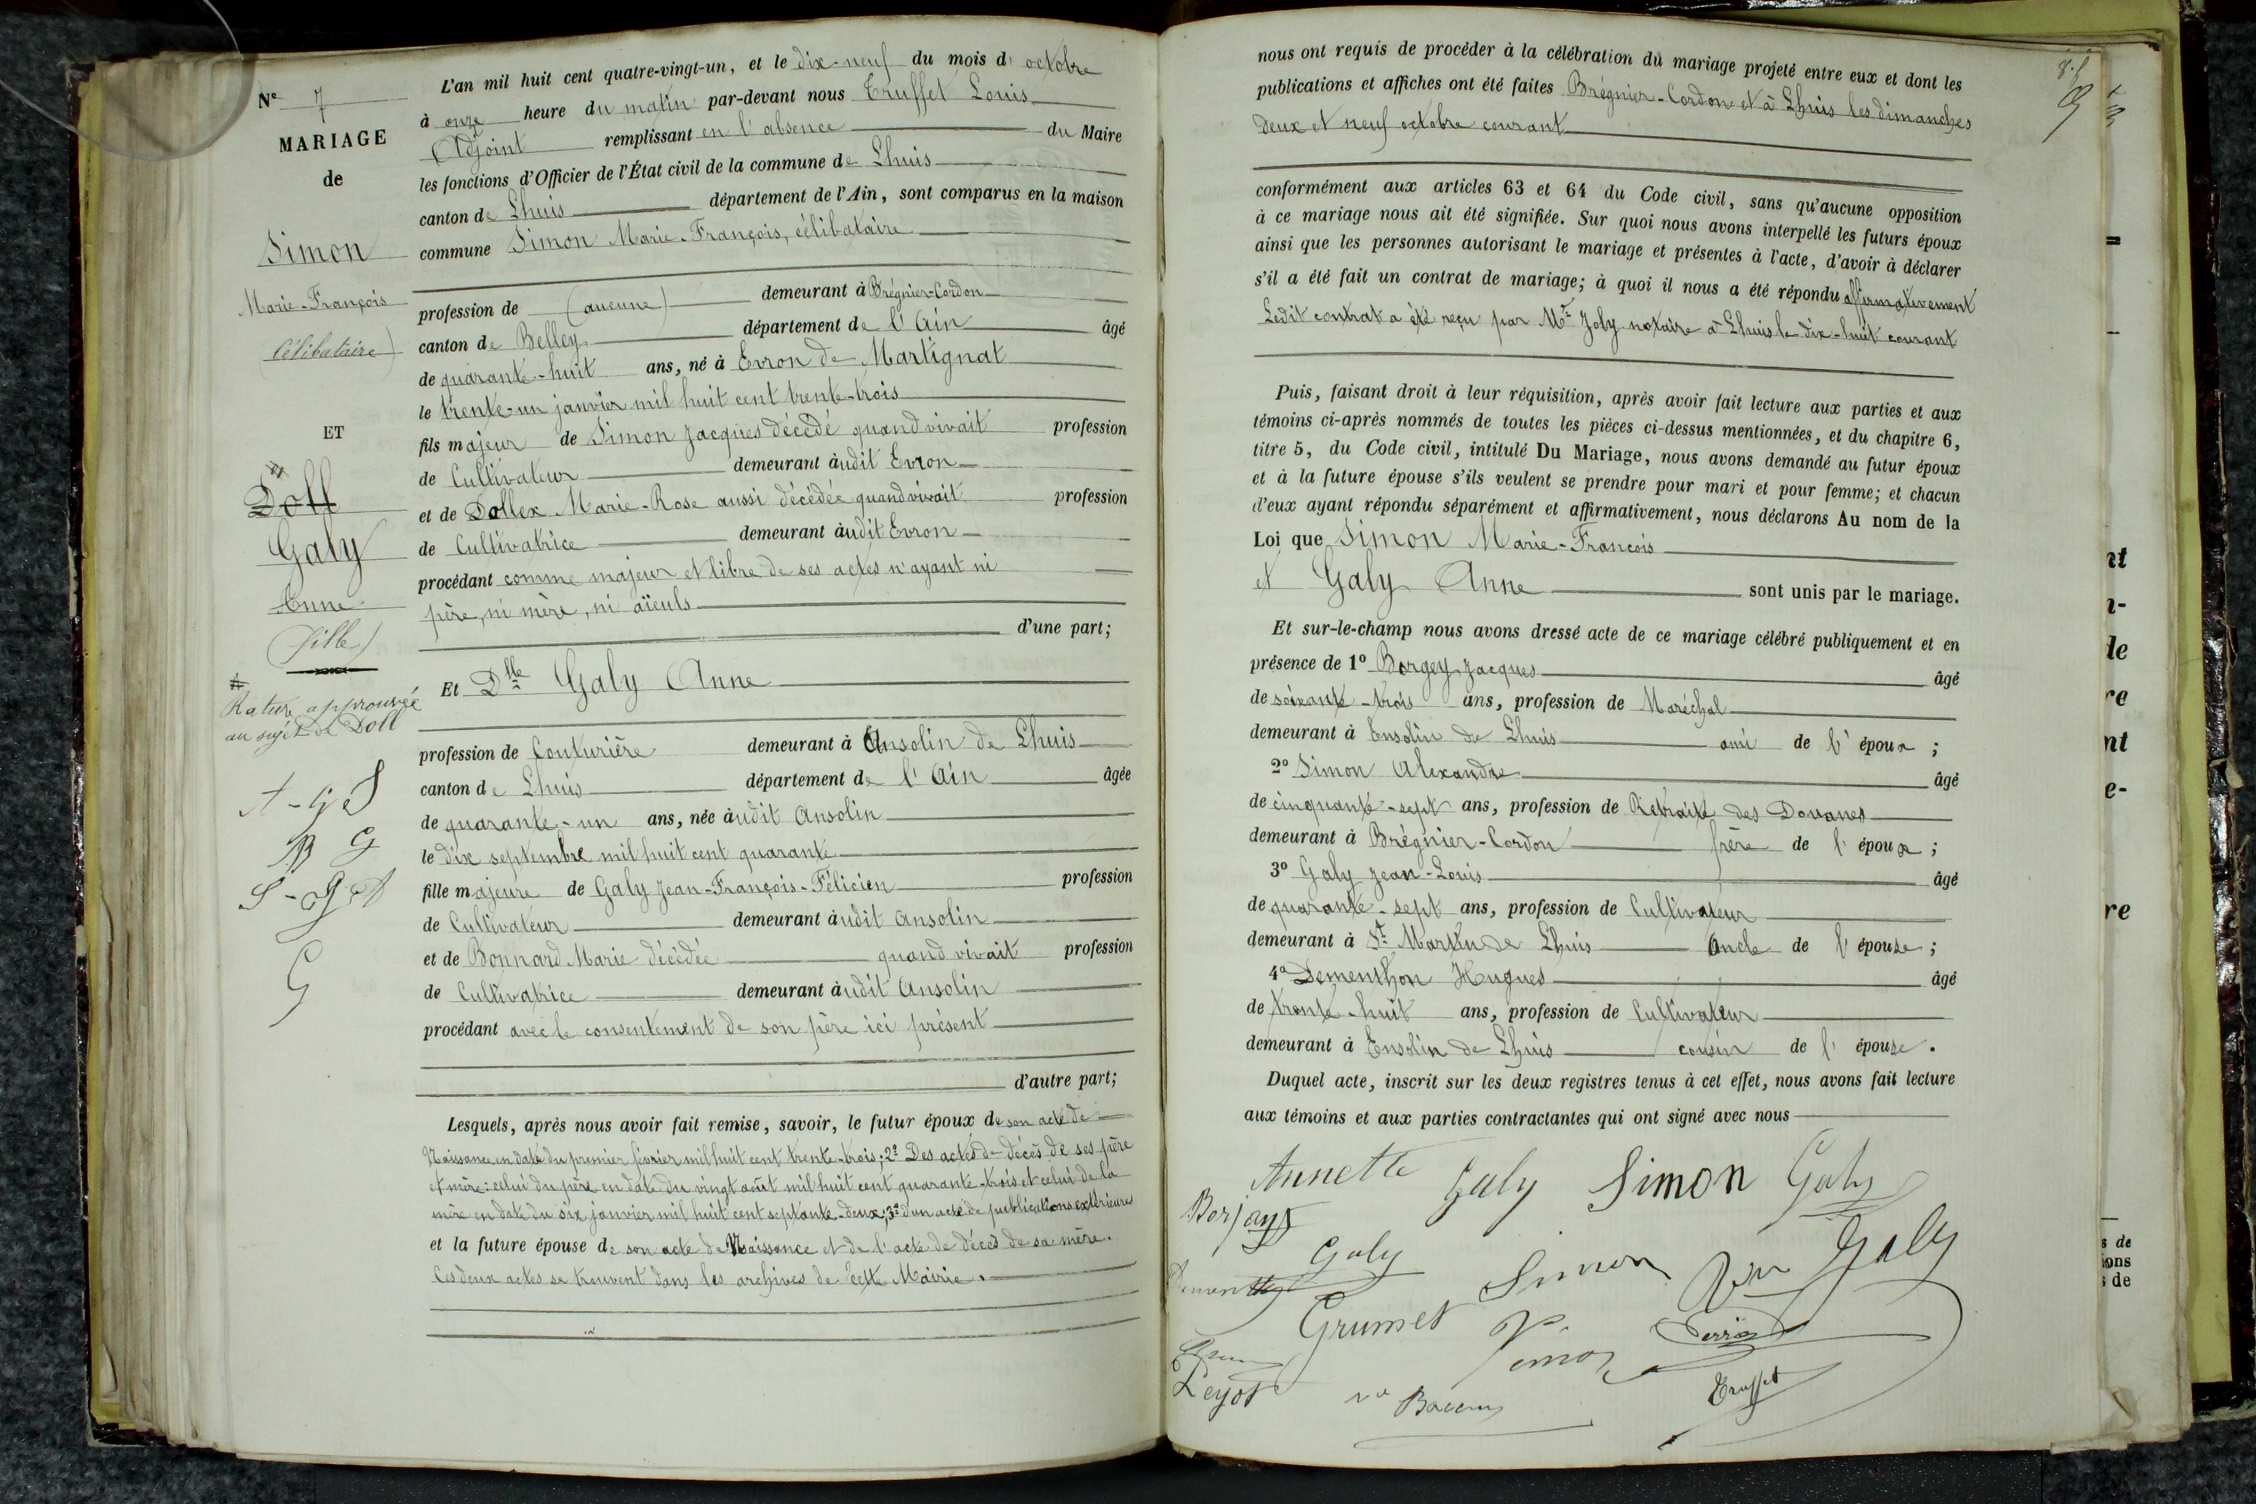 N° 7
MARIAGE
de
Simon
Marie-François
(Célibataire)
ET
Doll
Galy
Anne
(fille)
Rature approuvée
au sujet de Doll
A - G S
B G
G
L'an mil huit cent quatre-vingt-un, et le dix-neuf du mois d' octobre
à onze heure du matin par-devant nous Truffet Louis
Adjoint remplissant en l'absence du Maire
les fonctions d'Officier de l'État civil de la commune de Lhuis
canton de Lhuis département de l'Ain, sont comparus en la maison
commune Simon Marie-François, célibataire
profession de (aucune) demeurant à Brégnier-Cordon
canton de Belley département de l'Ain âgé
de quarante-huit ans, né à Evron de Martignat
le trente-un janvier mil huit cent trente-trois
fils majeur de Simon Jacques décédé quand vivait profession
de Cultivateur demeurant àudit Evron
et de Dollex Marie-Rose aussi décédée quand vivait profession
de Cultivatrice demeurant àudit Evron
procédant comme majeur et libre de ses actes n'ayant ni
père, ni mère, ni aïeuls
d'une part;
Et Dlle Galy Anne
profession de Couturière demeurant à Ansolin de Lhuis
canton de Lhuis département de l'Ain âgée
de quarante-un ans, née àudit Ansolin
le dix septembre mil huit cent quarante
fille majeure de Galy Jean-François-Félicien profession
de Cultivateur demeurant àudit Ansolin
et de Bonnard Marie décédée quand vivait profession
de Cultivatrice demeurant àudit Ansolin
procédant avec le consentement de son père ici présent
d'autre part;
Lesquels, après nous avoir fait remise, savoir, le futur époux de son acte de
Naissance en date du premier février mil huit cent trente-trois; 2° Des actes de décès de ses père
et mère: celui du père en date du vingt août mil huit cent quarante-trois et celui de la
mère en date du six janvier mil huit cent septante-deux; 3° d'un acte de publications extérieures
et la future épouse de son acte de Naissance et de l'acte de décès de sa mère.
Ces deux actes se trouvent dans les archives de cette Mairie.
nous ont requis de procéder à la célébration du mariage projeté entre eux et dont les
publications et affiches ont été faites Brégnier-Cordon et à Lhuis les dimanches
deux et neuf octobre courant
conformément aux articles 63 et 64 du Code civil, sans qu'aucune opposition
à ce mariage nous ait été signifiée. Sur quoi nous avons interpellé les futurs époux
ainsi que les personnes autorisant le mariage et présentes à l'acte, d'avoir à déclarer
s'il a été fait un contrat de mariage; à quoi il nous a été répondu affirmativement
Ledit contrat a été reçu par Me Joly notaire à Lhuis le dix-huit courant
Puis, faisant droit à leur réquisition, après avoir fait lecture aux parties et aux
témoins ci-après nommés de toutes les pièces ci-dessus mentionnées, et du chapitre 6,
titre 5, du Code civil, intitulé Du Mariage, nous avons demandé au futur époux
et à la future épouse s'ils veulent se prendre pour mari et pour femme; et chacun
d'eux ayant répondu séparément et affirmativement, nous déclarons Au nom de la
Loi que Simon Marie-François
et Galy Anne sont unis par le mariage.
Et sur-le-champ nous avons dressé acte de ce mariage célébré publiquement et en
présence de 1° Borgey Jacques âgé
de soixante-trois ans, profession de Maréchal
demeurant à Ensolin de Lhuis ami de l'époux;
2° Simon Alexandre âgé
de cinquante-sept ans, profession de Retraité des Douanes
demeurant à Brégnier-Cordon frère de l'époux;
3° Galy Jean-Louis âgé
de quarante-sept ans, profession de Cultivateur
demeurant à St Martin de Lhuis Oncle de l'épouse;
4° Dementhon Hugues âgé
de trente-huit ans, profession de Cultivateur
demeurant à Ensolin de Lhuis cousin de l'épouse.
Duquel acte, inscrit sur les deux registres tenus à cet effet, nous avons fait lecture
aux témoins et aux parties contractantes qui ont signé avec nous
Annette Galy Simon Galy
Galy Simon Galy
Grumet
Peyot Truffet